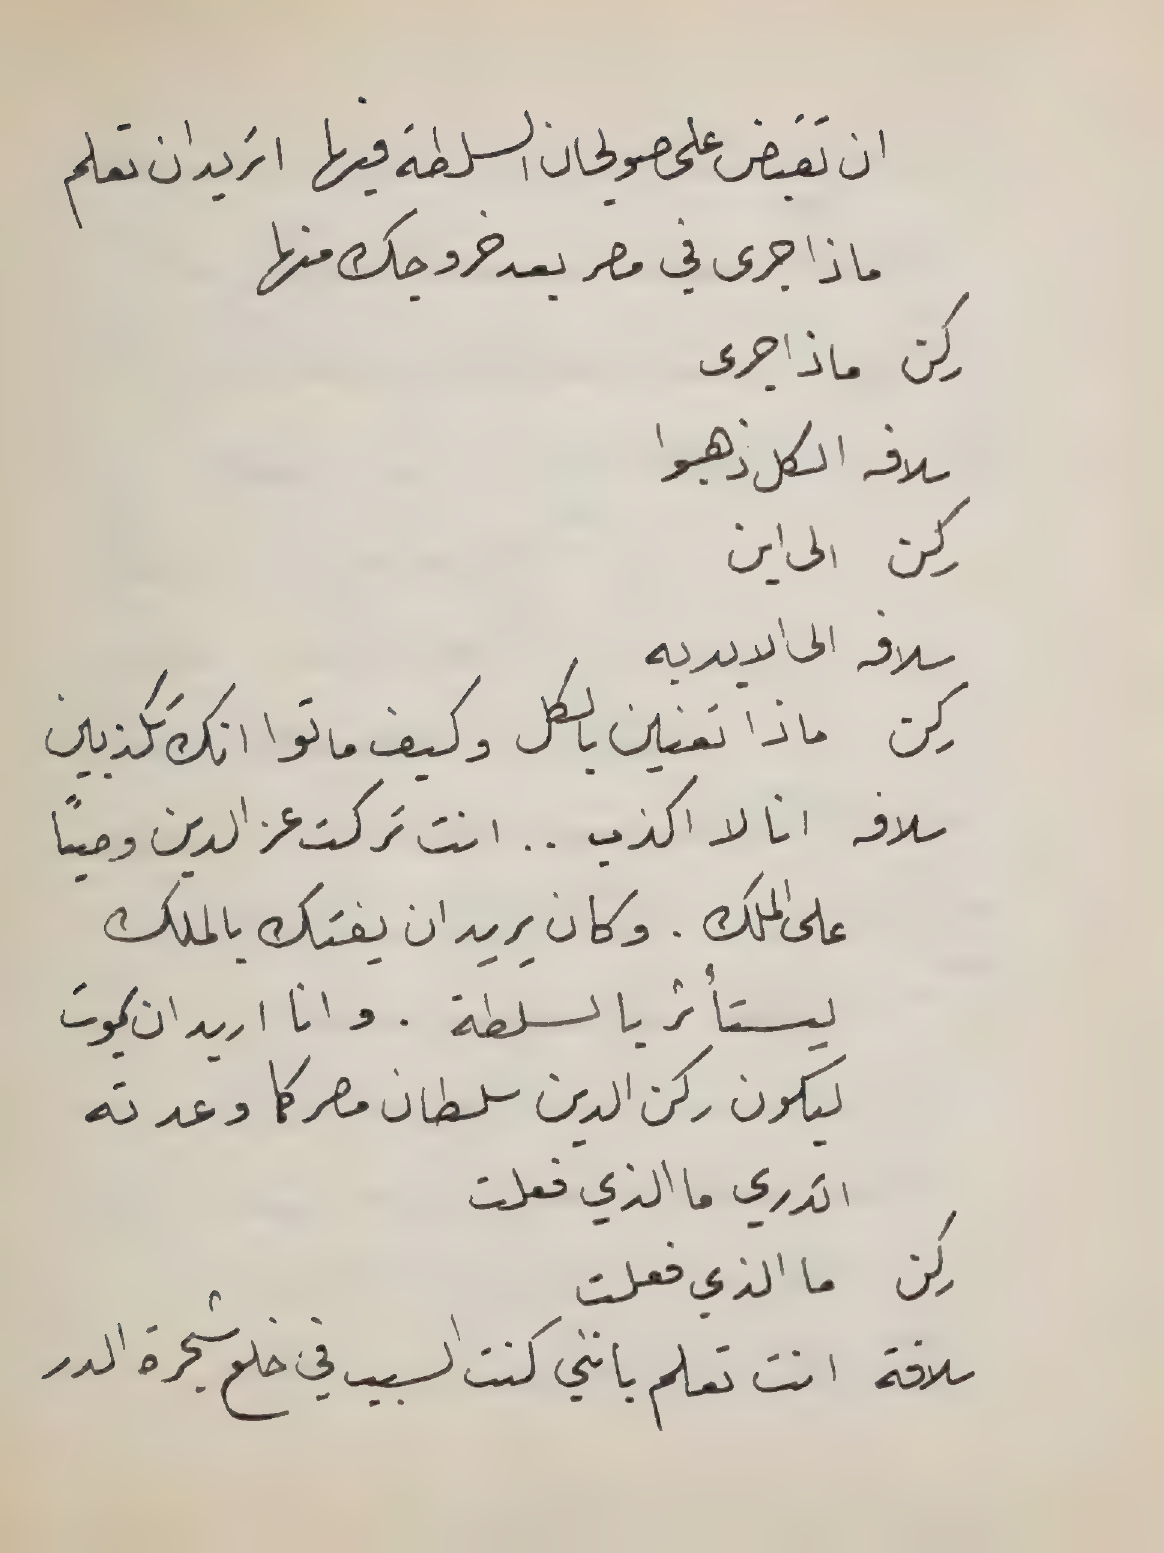 ان تقبض على صولجان السلطة فيها اتريد ان تعلم
ماذا جرى في مصر بعد خروجك منها
ركن ماذا جرى
سلافه الكل ذهبوا
ركن الى اين
سلافه الى الابديه
ركن ماذا تعنين بالكل وكيف ماتوا انك تكذبين
سلافه انا لا اكذب .. انت تركت عز الدين وصيًا
على الملك . وكان يريد ان يفتك بالملك
ليستأثر بالسلطة . وانا اريد ان يموت
ليكون ركن الدين سلطان مصر كما وعدته
اتدري ما الذي فعلت
ركن ما الذي فعلت
سلافة انت تعلم بانني كنت السبب في خلع شجرة الدر